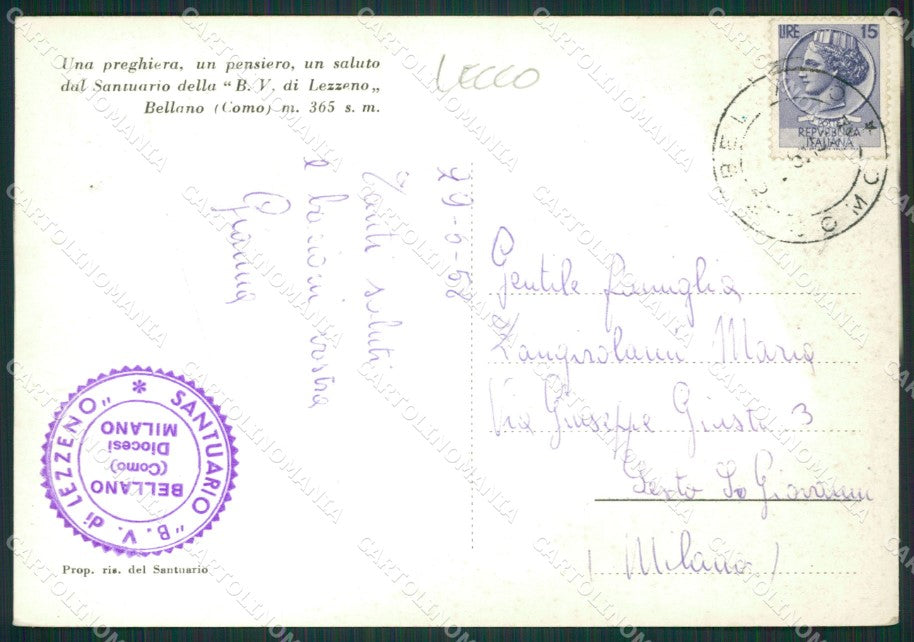 Una preghiera, un pensiero, un saluto
dal Santuario della "B. V. di Lezzeno„
Bellano (Como) m. 365 s. m.
LECCO
LIRE 15
REPVBBLICA
ITALIANA
BELLANO
COMO
29-6-58
Tanti saluti
e bacioni vostra
Gianna
Gentile famiglia
Zangirolami Maria
Via Giuseppe Giusti 3
Sesto S. Giovanni
(Milano)
SANTUARIO "B. V. di LEZZENO" *
BELLANO
(Como)
Diocesi
MILANO
Prop. ris. del Santuario
CARTOLINOMANIA